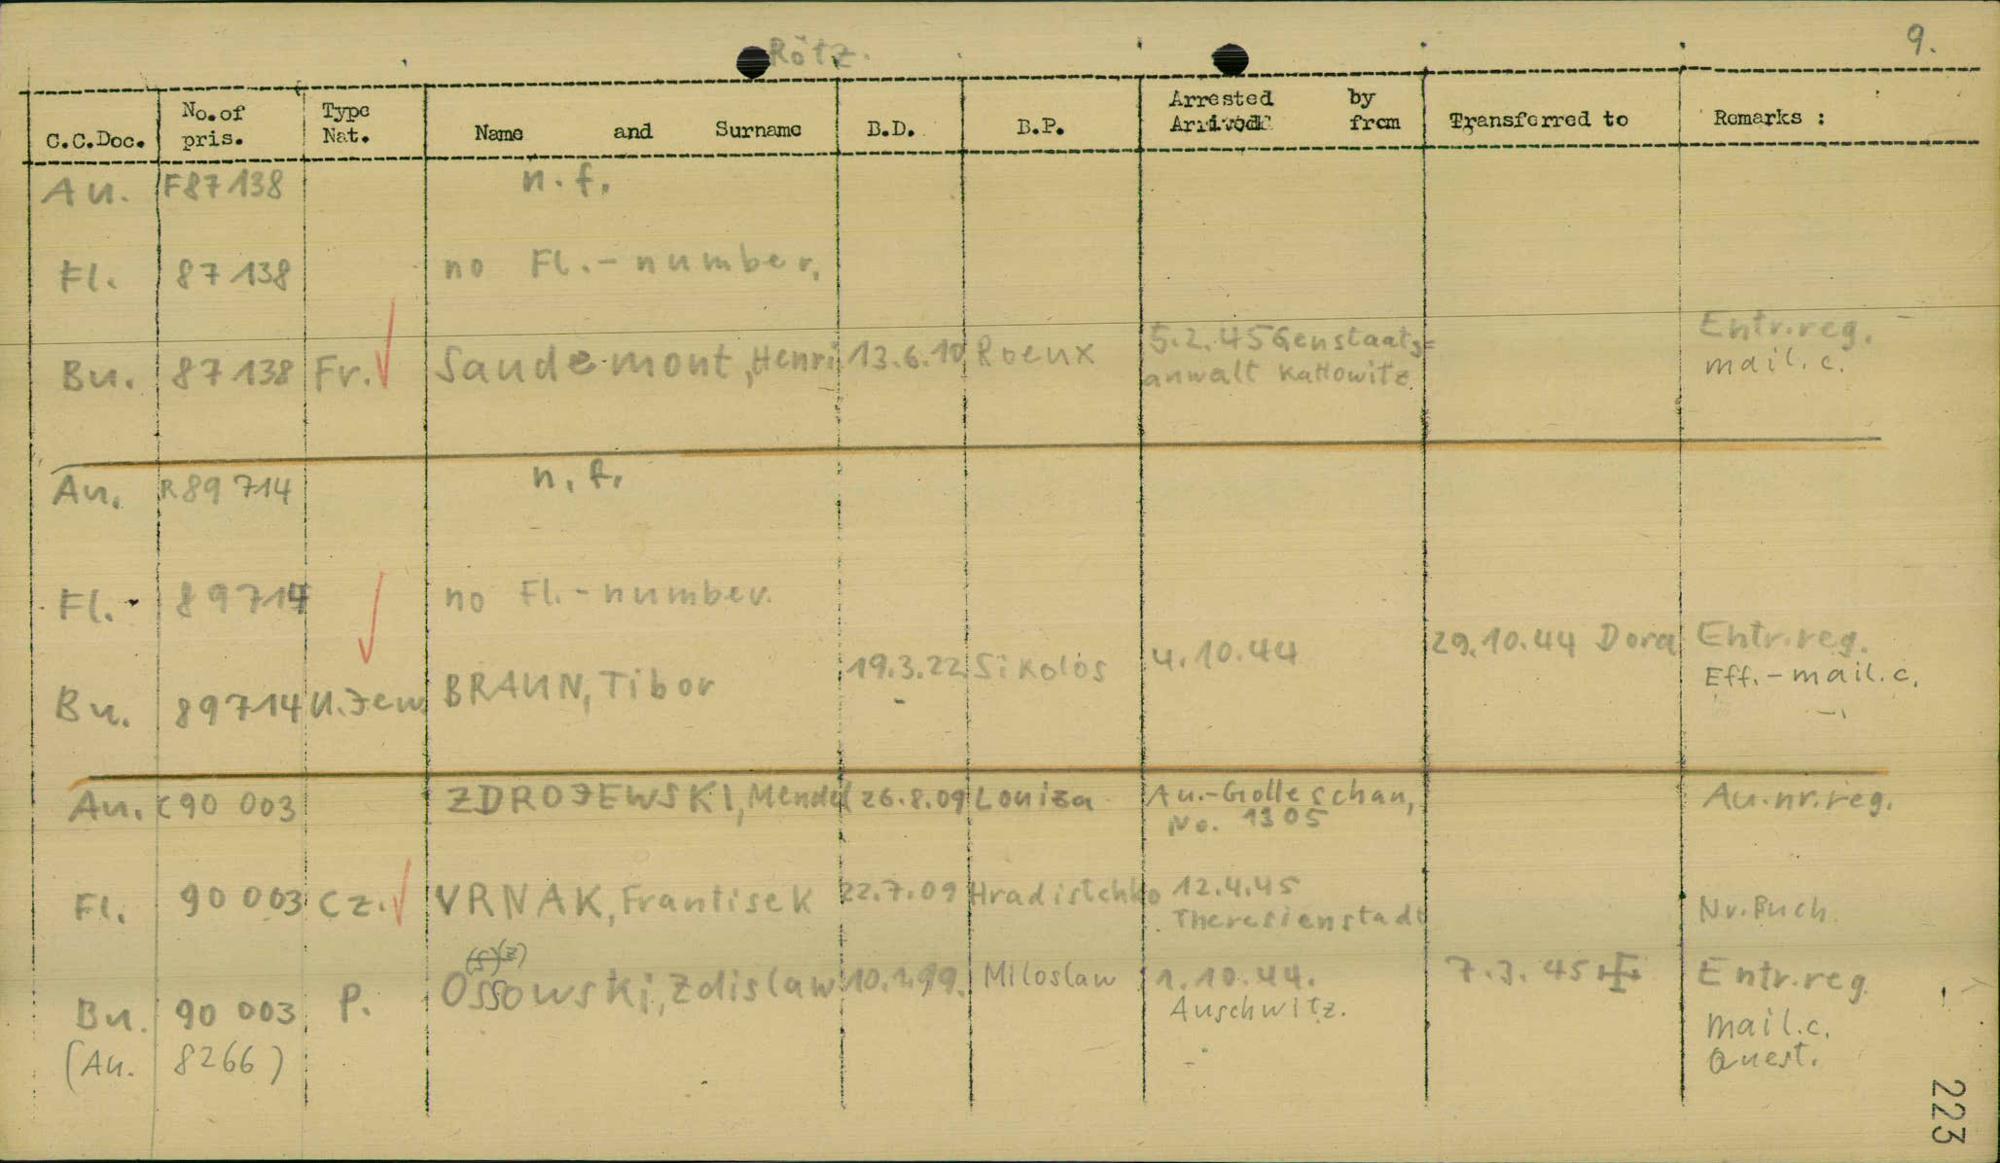 Rötz.
9.
C.C.Doc. No. of pris. Type Nat. Name and Surname B.D. B.P. Arrested by Arrived from Transferred to Remarks :
Au. F87138 n.f.
Fl. 87138 no Fl.-number.
Bu. 87138 Fr. Saudemont, Henri 13.6.10 Roeux 5.2.45 Genstaats= Entr.reg.
anwalt Kattowitz. mail.c.
Au. R89714 n.f.
Fl. 89714 no Fl.-number.
Bu. 89714 U.Jew BRAUN, Tibor 19.3.22 Sikolos 4.10.44 29.10.44 Dora Entr.reg.
Eff.-mail.c.
Au. C90 003 ZDROJEWSKI, Mendel 26.8.09 Louiza Au.-Golleschau, Au.nr.reg.
No. 1305
Fl. 90 003 Cz. VRNAK, Frantisek 22.7.09 Hradistehko 12.4.45
Theresienstadt Nr.Buch
(s)(z)
Bu. 90 003 P. Ossowski, Zdislaw Miloslaw 1.10.44. 7.3.45 Entr.reg.
Auschwitz. mail.c.
(Au. 8266) Quest.
223